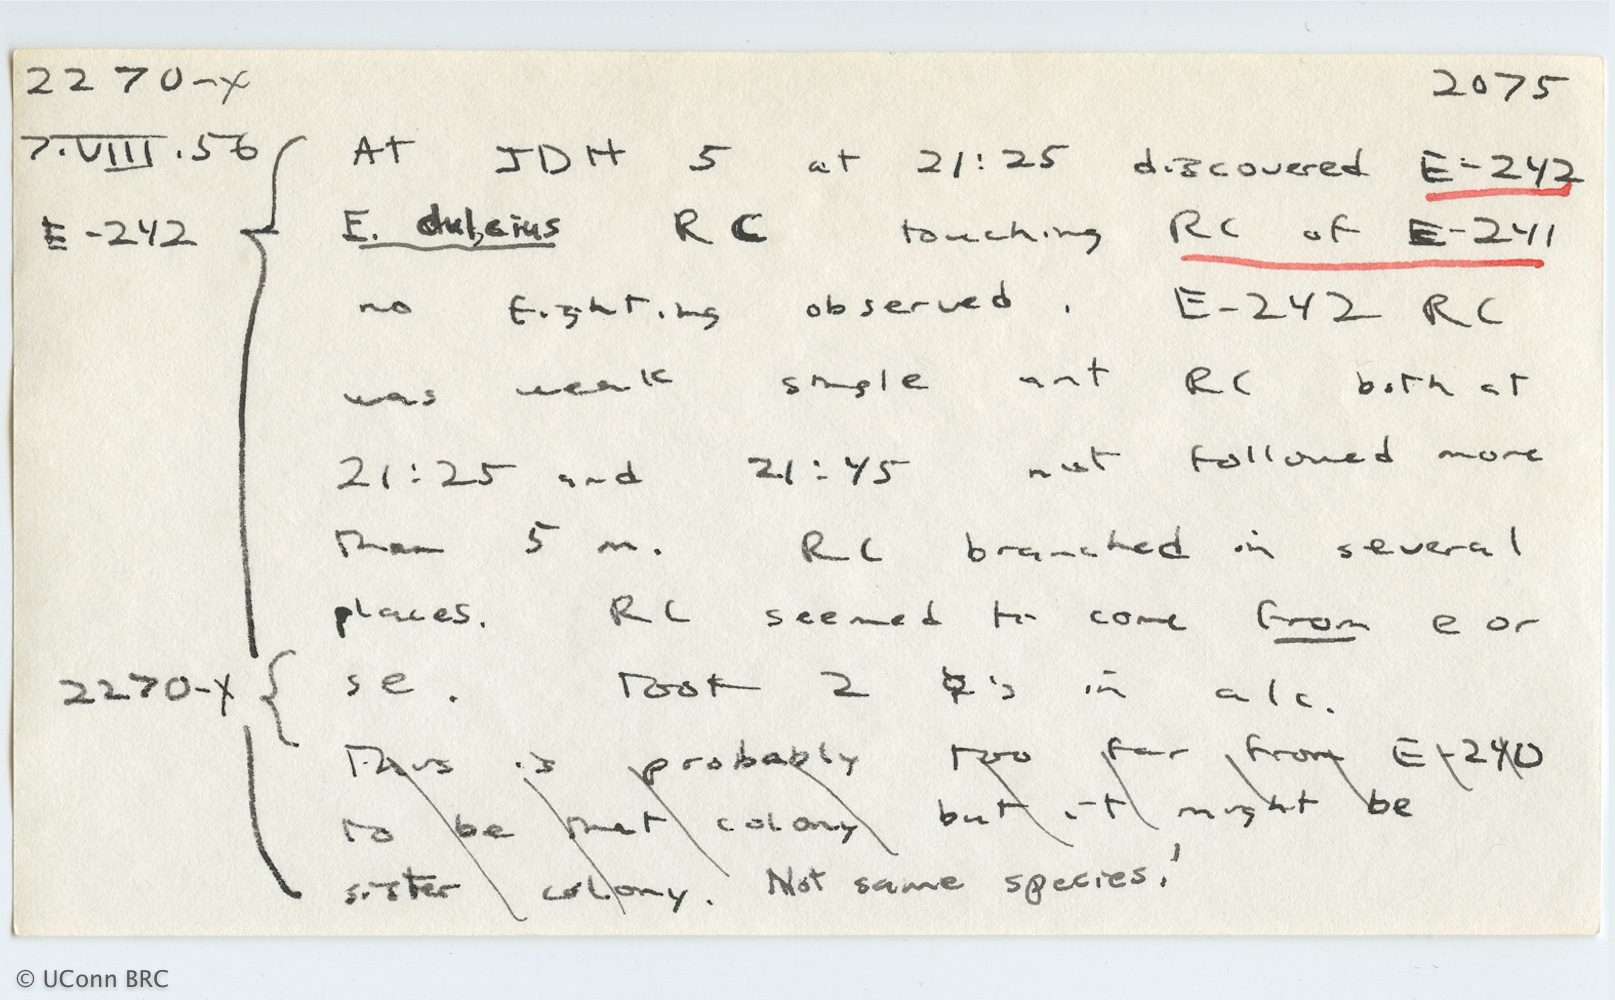 2270-X 2075
7.VIII.56 At JDH 5 at 21:25 discovered E-242
E-242 E. dulcius RC touching RC of E-241
no fighting observed. E-242 RC
was weak single ant RC both at
21:25 and 21:45 not followed more
than 5 m. RC branched in several
places. RC seemed to come from e or
2270-X se. Took 2 ☿'s in alc.
This is probably too far from E-240
to be that colony but it might be
sister colony. Not same species!
© UConn BRC